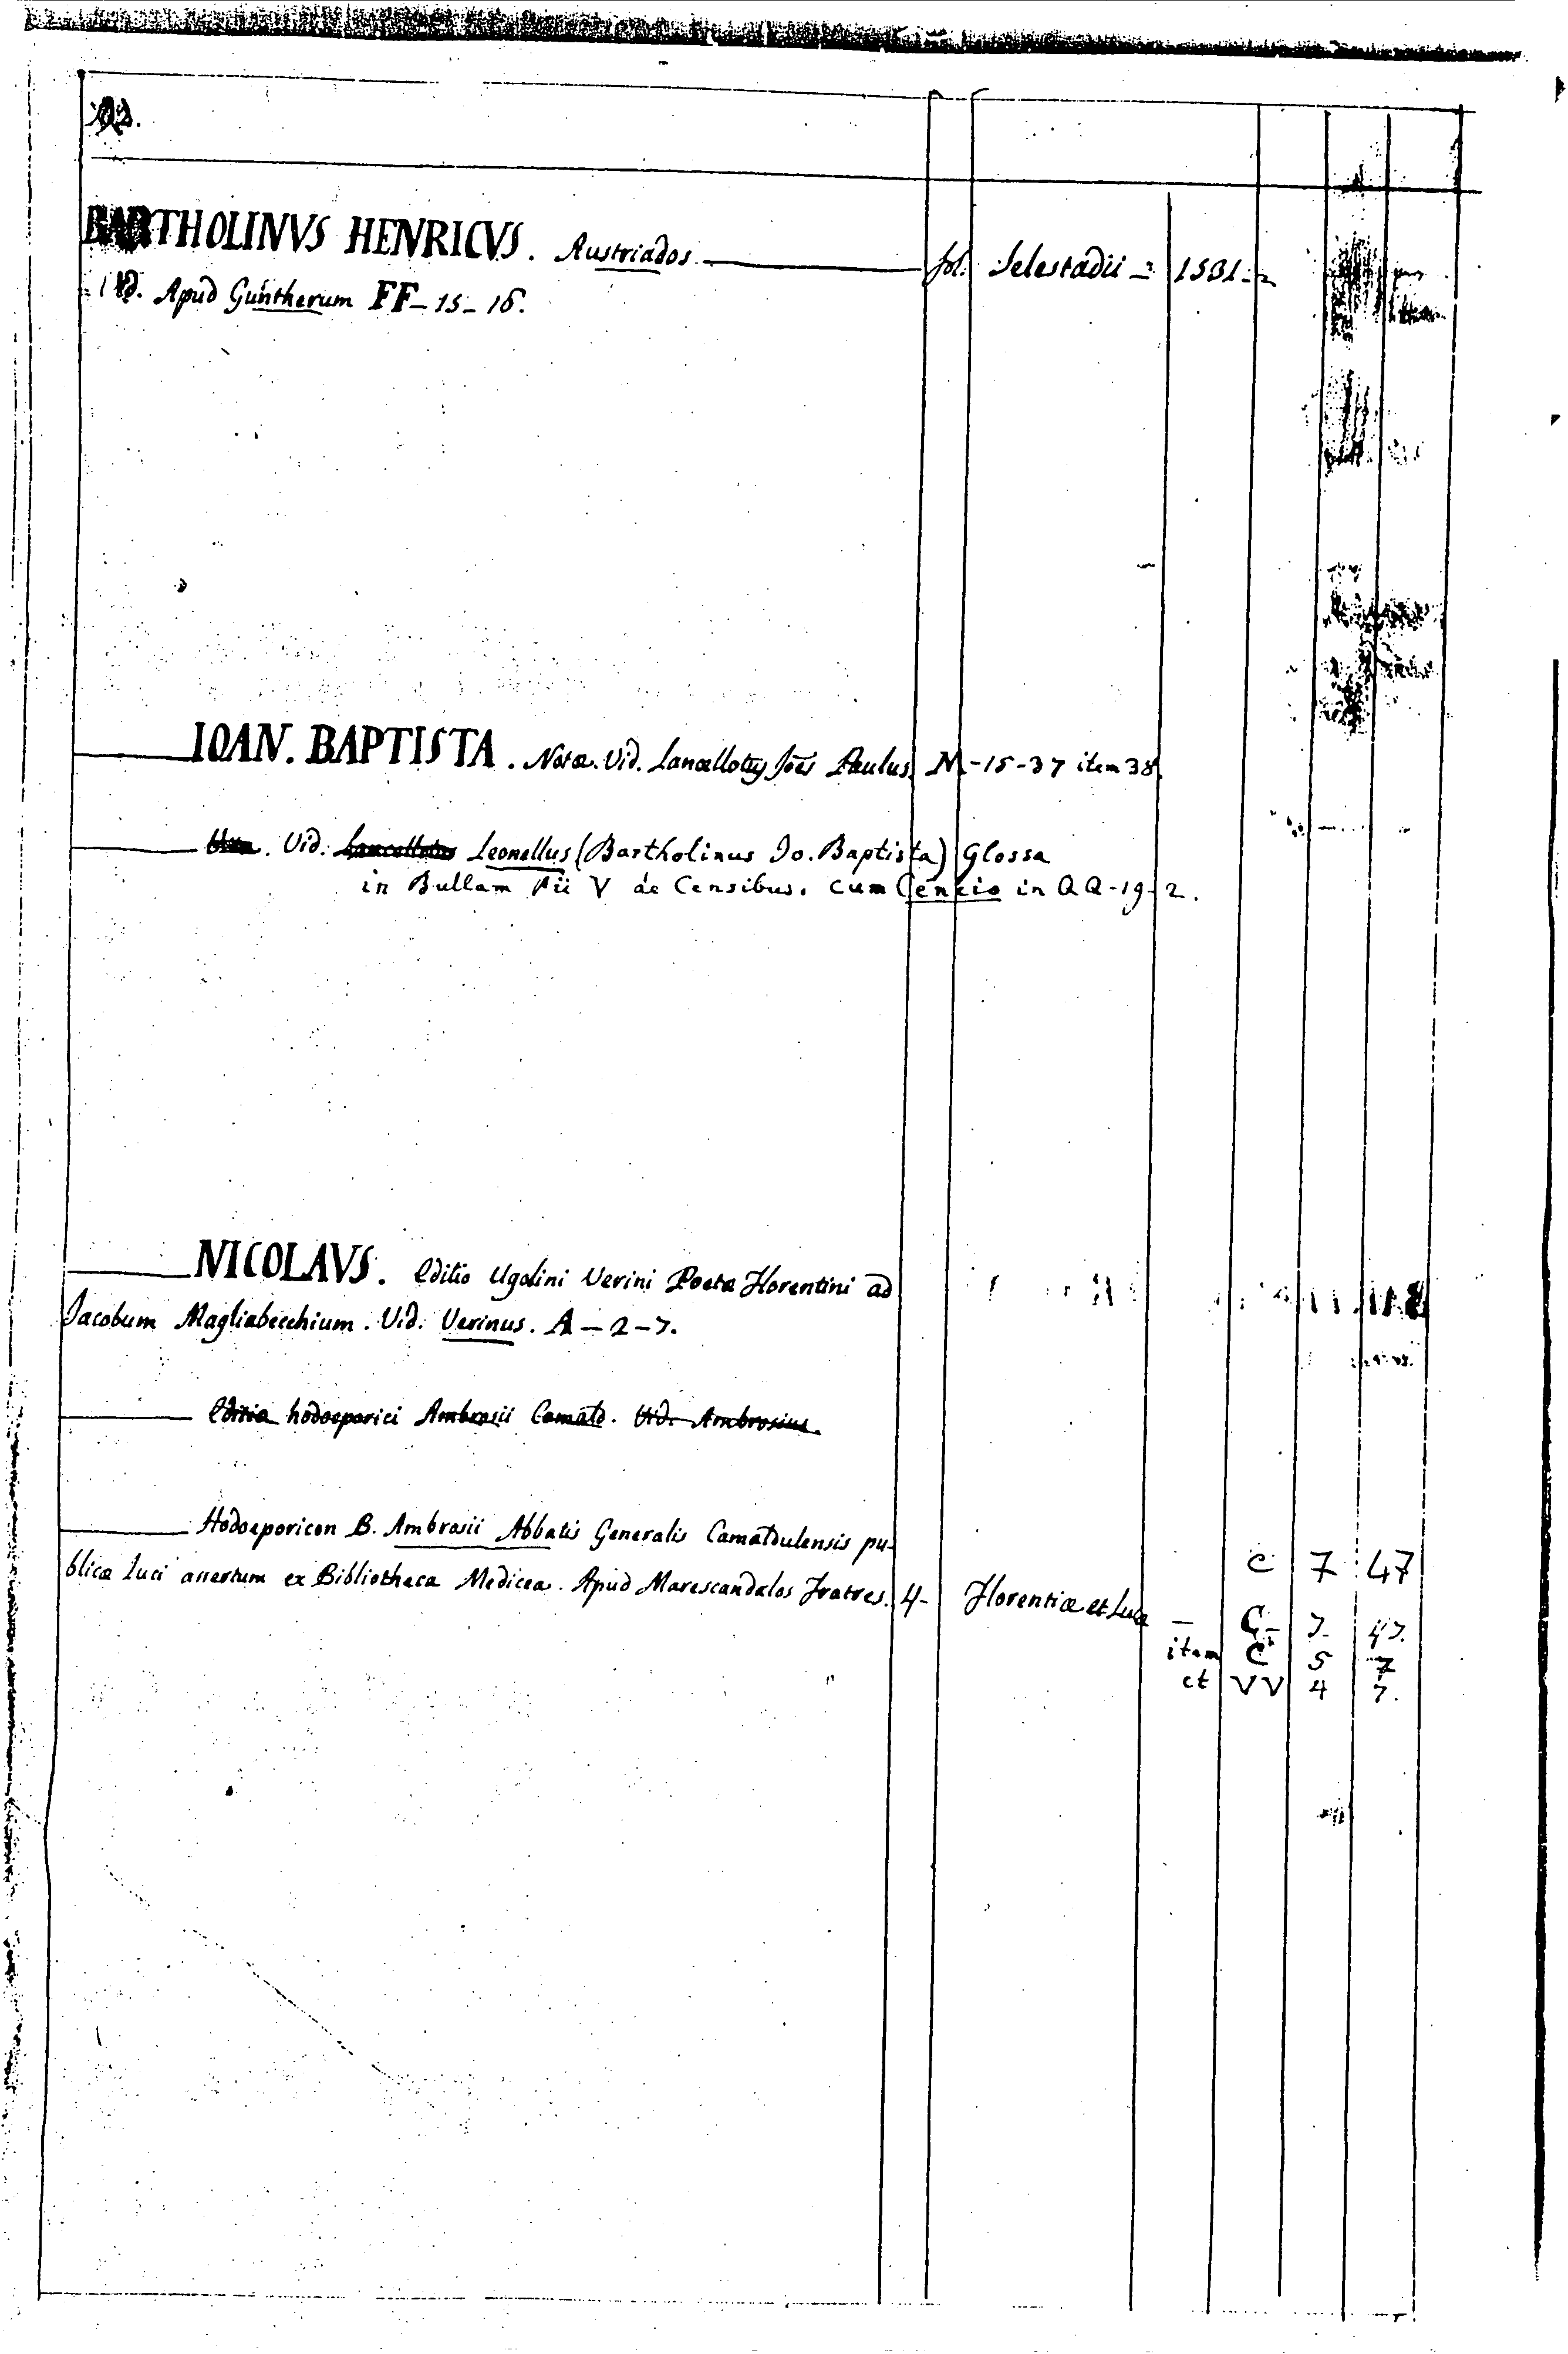 BARTHOLINVS HENRICVS. Austriados. fol. Selestadii - 1531
Vid. Apud Guntherum FF-15-16.
IOAN. BAPTISTA. Notæ. Vid. Lancellotus Joes Paulus M-15-37 item 38.
Vid. Lancellotus Leonellus (Bartholinus Io. Baptista) Glossa
in Bullam Pii V de Censibus. cum Cencio in QQ-19-2.
NICOLAVS. Editio Ugolini Verini Poetæ Florentini ad
Jacobum Magliabecchium. Vid. Verinus. A-2-7.
Editio hodoeporici Ambrosii Camald. Vid. Ambrosius.
Hodoeporicon B. Ambrosii Abbatis Generalis Camaldulensis pu-
C 7 47
blicæ luci assertum ex Bibliotheca Medicea. Apud Marescandolos Fratres. 4- Florentiæ et Lucæ - C- 7- 47.
item C 5 7
et VV 4 7.